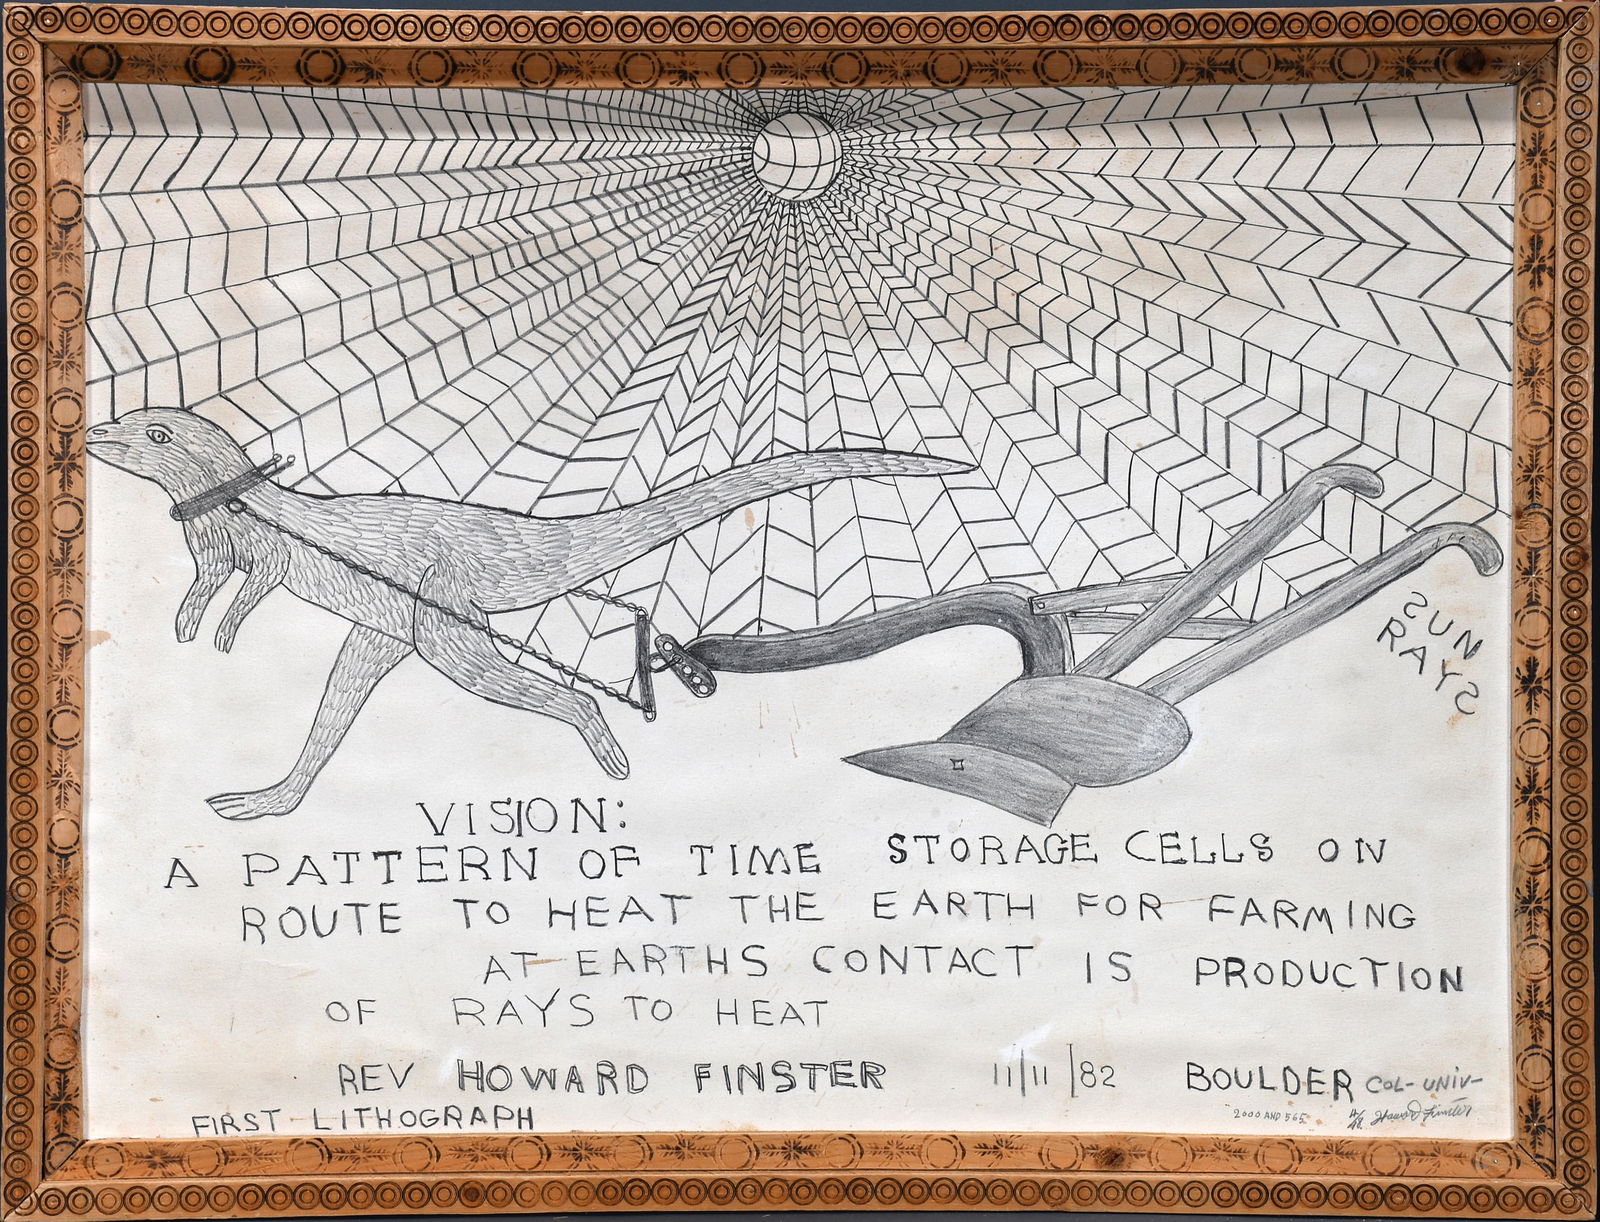 SUN
RAYS
VISION:
A PATTERN OF TIME STORAGE CELLS ON
ROUTE TO HEAT THE EARTH FOR FARMING
AT EARTHS CONTACT IS PRODUCTION
OF RAYS TO HEAT
REV HOWARD FINSTER 11/11/82 BOULDER COL-UNIV-
FIRST LITHOGRAPH 2000 AND 565 Howard Finster